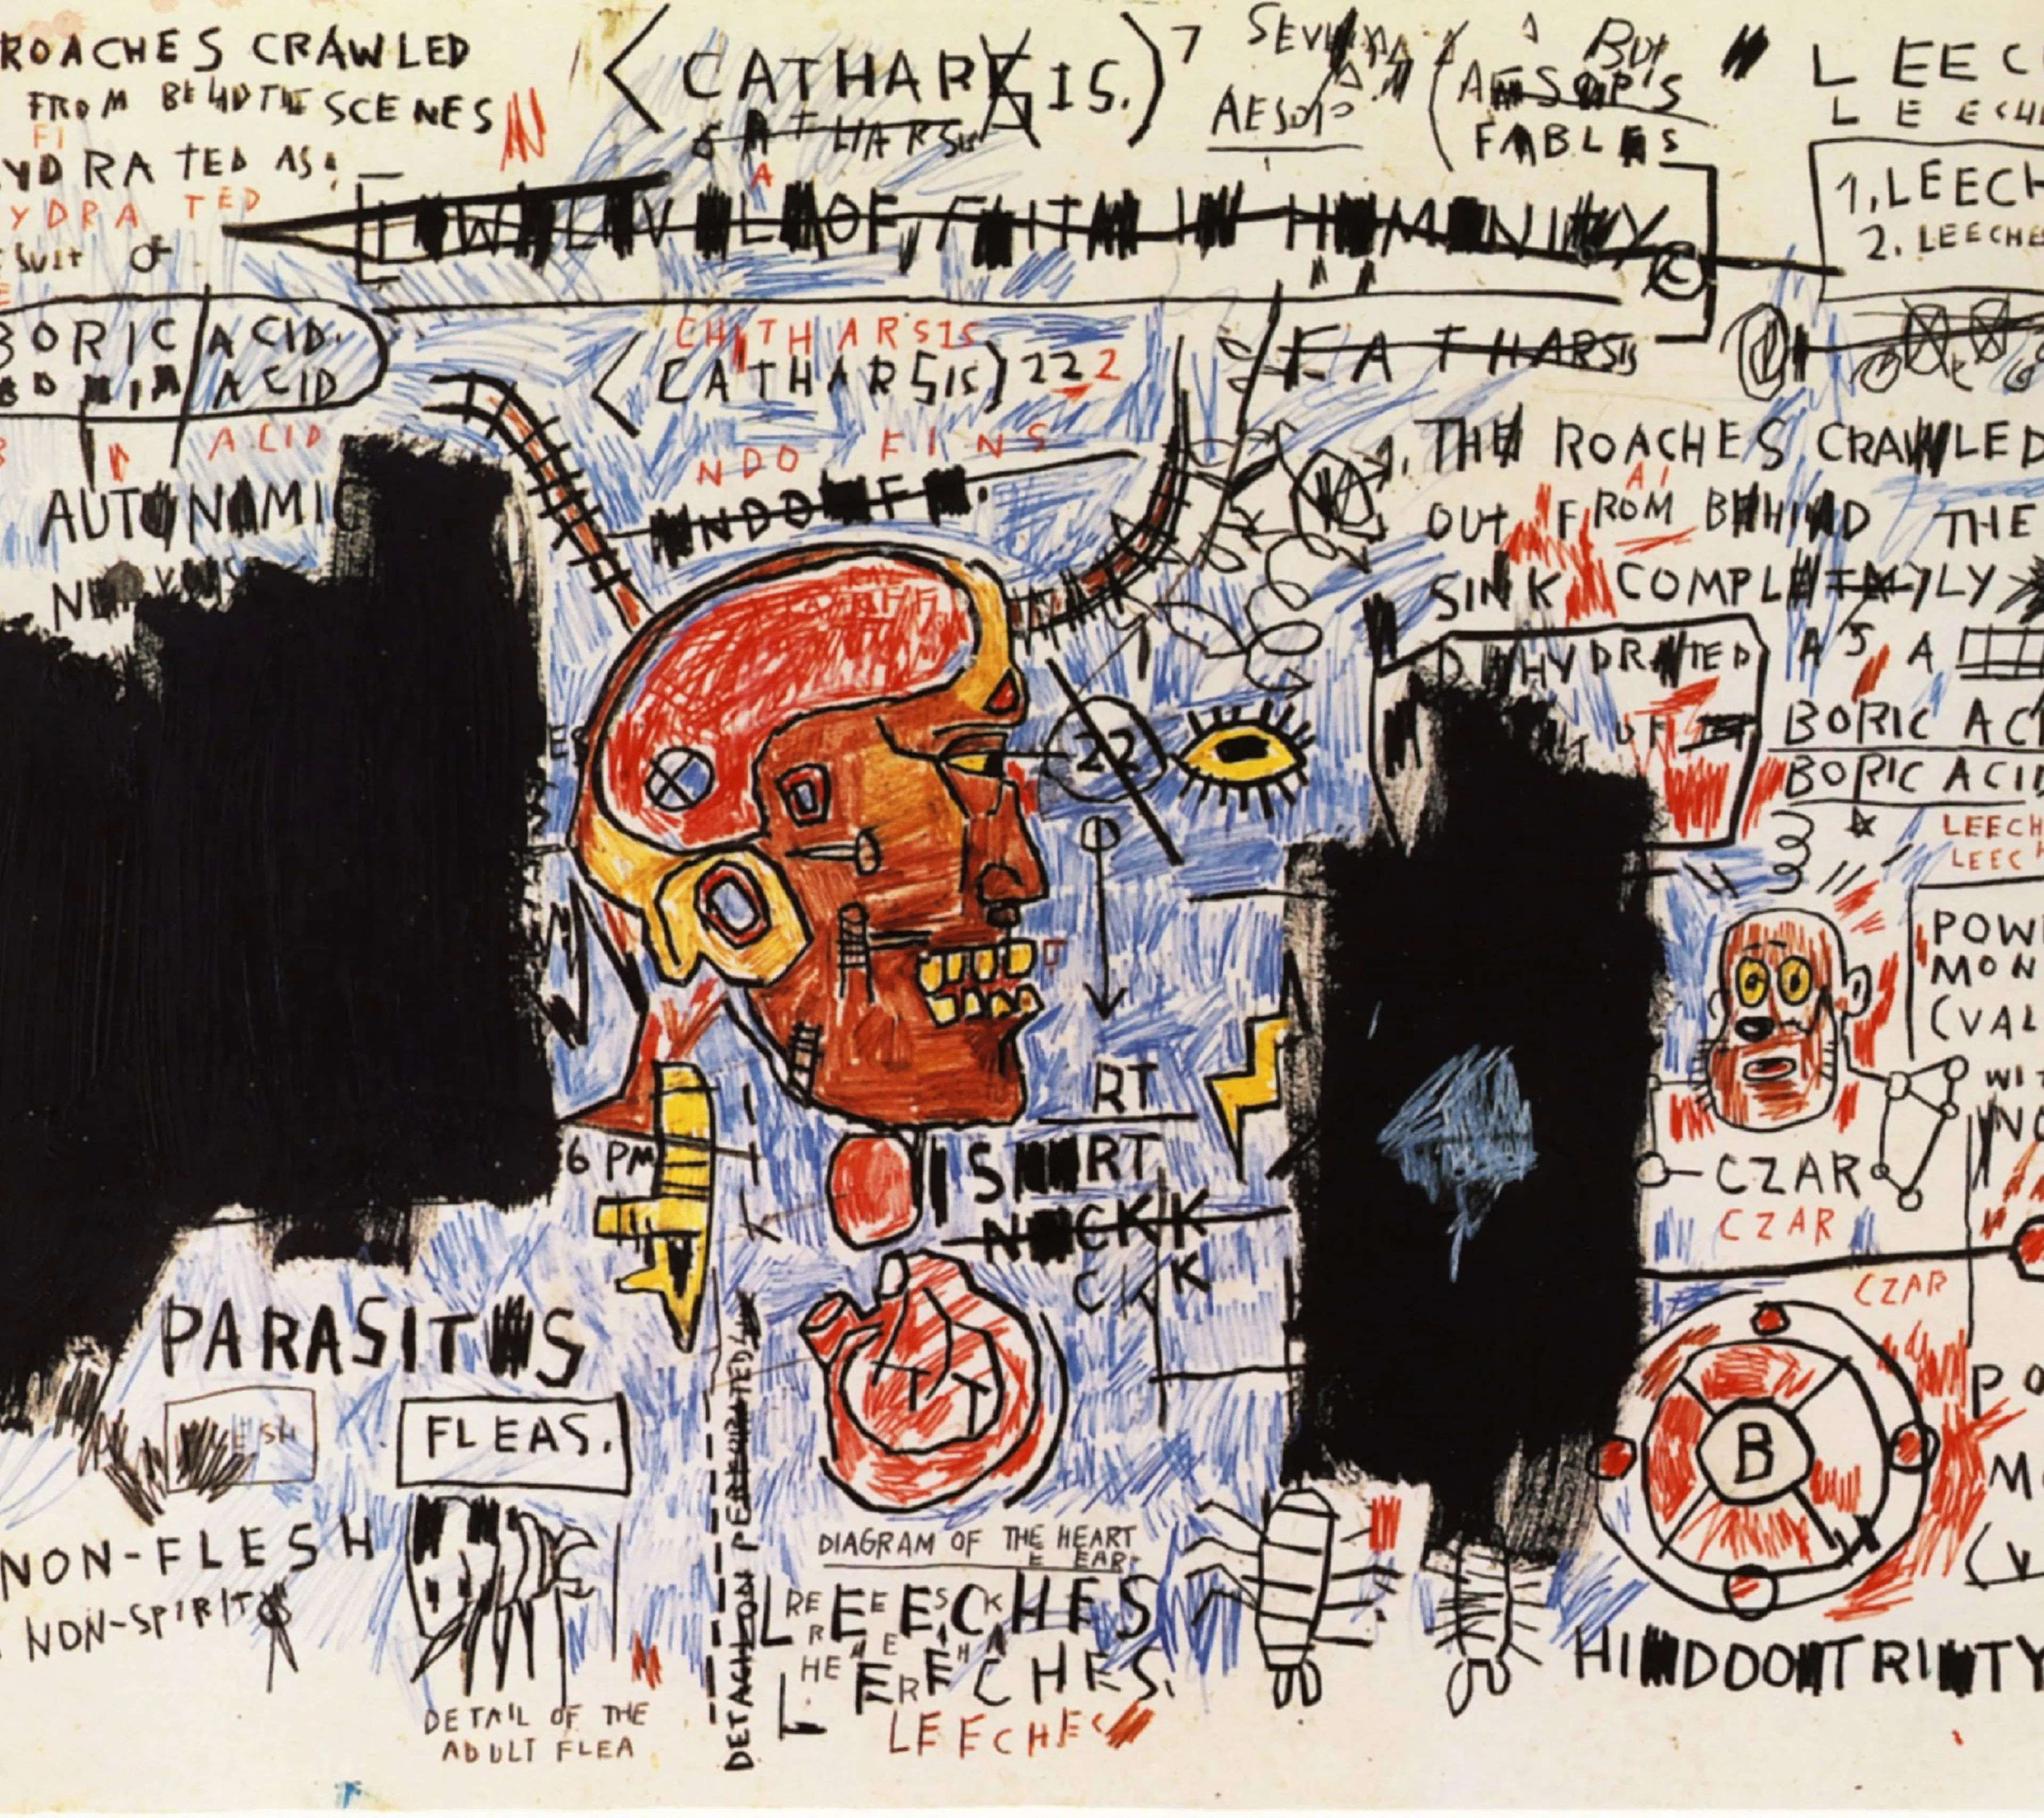 ROACHES CRAWLED
FROM BEHIND THE SCENES
FI
YDRATED AS:
YDRA TED
SUIT OF
BORIC ACID.
ACID
ACID
AUTONAMIC
<CATHARSIS.)7
CATHARSIS
A
SEVEN
AESOP
BUT
(AESOP'S
FABLES
LEEC
LEECH
1. LEECH
2. LEECHE
[LOW LEVEL OF FAITH IN HUMANITY ©
FATHARSIS
CHITHARSIS
<CATHARSIS) 222
NDO FINS
1. THE ROACHES CRAWLED
AI
OUT FROM BEHIND THE
SINK COMPLETELY
AS A
DEHYDRATED
OF
BORIC ACI
BORIC ACID
LEECH
LEECH
22
POW
MON
(VAL
WIT
NO
CZAR
CZAR
CZAR
6 PM
RT
SHORT
NECKK
CKK
PARASITES
ESH
FLEAS.
NON-FLESH
NON-SPIRIT
DETAIL OF THE
ADULT FLEA
DETACH ON PERFORATED
T T
DIAGRAM OF THE HEART
E EAR
LEECHES
LEECHES.
LEECHES
B
PO
M
(V
HINDOO TRINITY